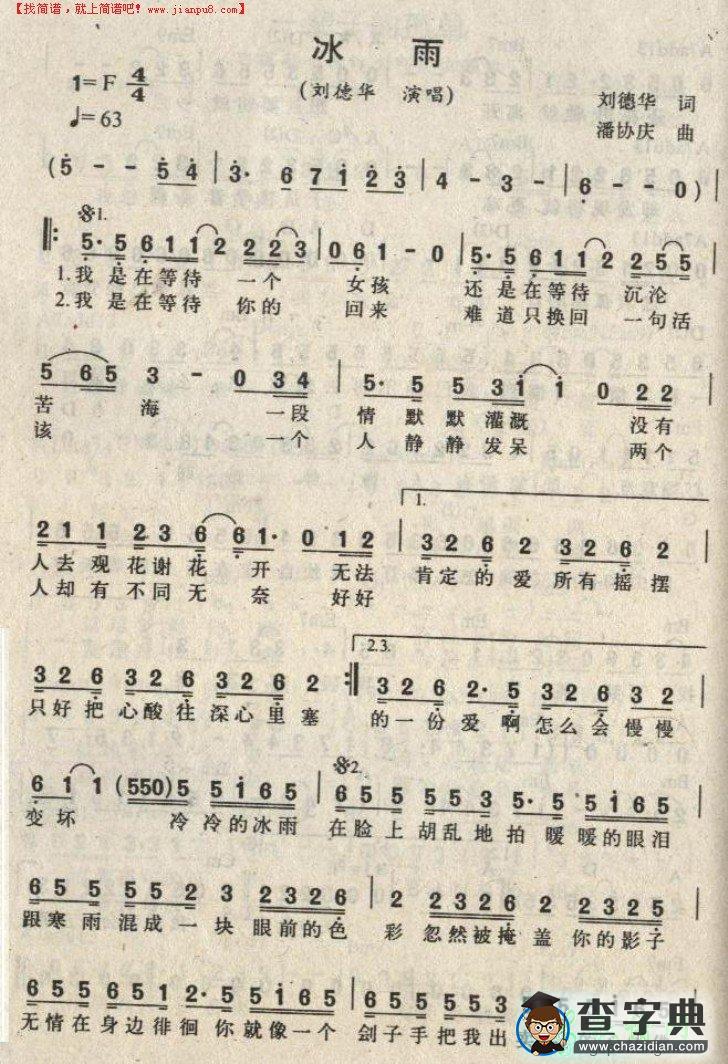 【找简谱，就上简谱吧！www.jianpu8.com】
冰 雨
1=F 4/4
(刘德华 演唱)
刘德华 词
♩=63
潘协庆 曲
(5 - - 5 4 | 3· 6 7 1 2 3 | 4 - 3 - | 6 - - 0)
1.
5· 5 6 1 1 2 2 2 3 | 0 6 1 - 0 | 5· 5 6 1 1 2 2 5 5
1.我 是在等待 一个 女孩 还 是在等待 沉沦
2.我 是在等待 你的 回来 难 道只换回 一句活
5 6 5 3 - 0 3 4 | 5· 5 5 3 1 1 0 2 2
苦 海 一段 情 默默灌溉 没有
该 一个 人 静静发呆 两个
1.
2 1 1 2 3 6 6 1· 0 1 2 | 3 2 2 6 2 3 2 2 6 2
人去观花谢花 开 无法 肯定的爱所有摇摆
人却有不同无 奈 好好
2.3.
3 2 6 3 2 6 3 2 6 2 :‖ 3 2 6 2· 5 3 2 6 3 2
只好把心酸往深心里塞 的一份爱啊怎么会慢慢
2.
6 1 1 (550) 5 5 1 6 5 | 6 5 5 5 5 3 5· 5 5 1 6 5
变坏 冷冷的冰雨 在脸上胡乱地拍 暖暖的眼泪
6 5 5 5 5 2 3 2 3 2 6 | 2 2 3 2 6 2 2 3 2 5
跟寒雨混成一块 眼前的色 彩 忽然被掩盖你的影子
6 5 5 6 5 5 1 2· 5 5 1 6 5 | 6 5 5 5 5 3
无情在身边徘徊 你就像一个 刽子手把我出
查字典
www.chazidian.com